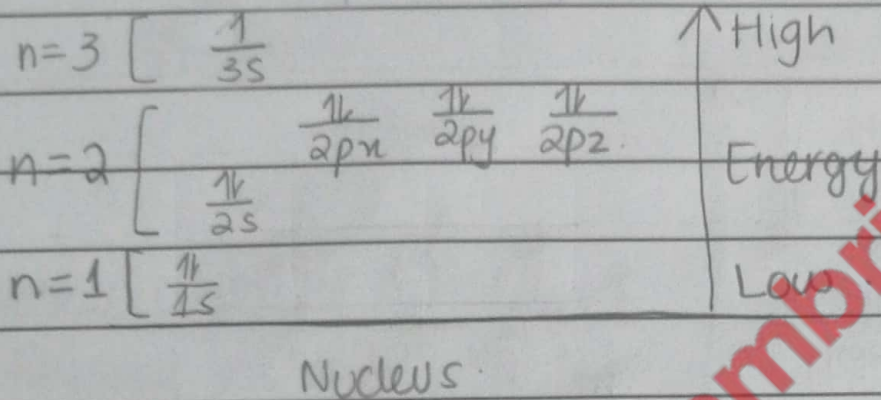 n=3 [ 1 3s High
1l 2px 1l 2py 1l 2pz.
n=2 [ Energy
1l 2s
n=1 [ 1l 1s Low
Nucleus.